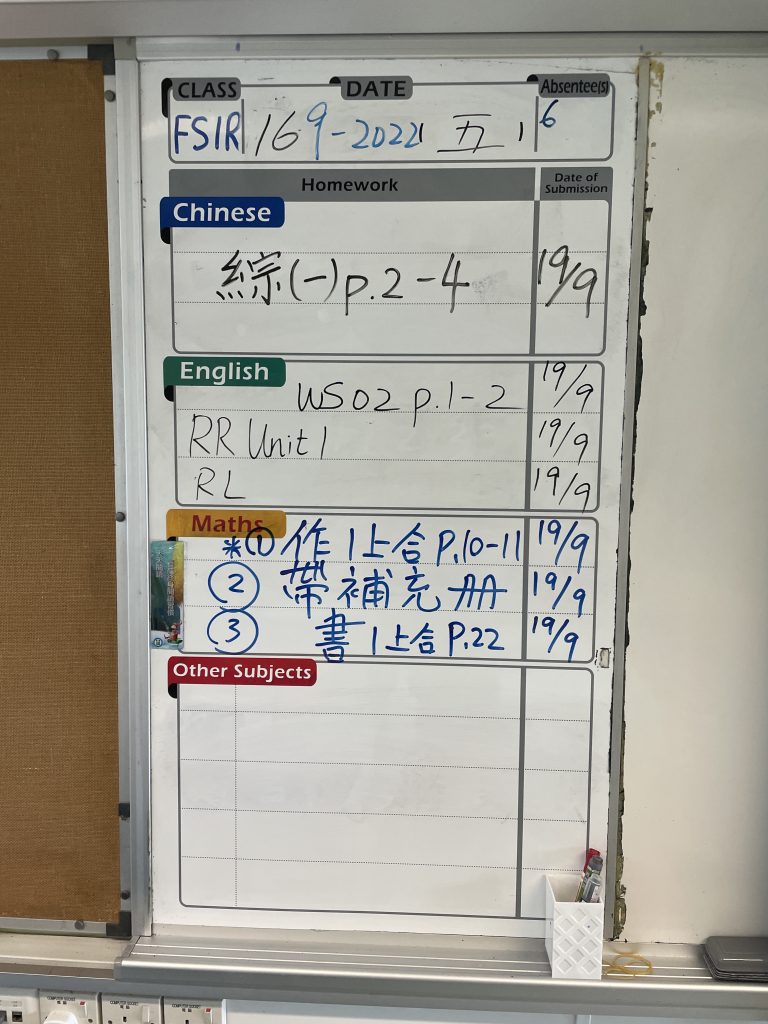 CLASS DATE Absentee(s)
FSIR 16 9-2022 (五) 6
Homework Date of Submission
Chinese
綜(一)p.2-4 19/9
English
WS02 p.1-2 19/9
RR Unit 1 19/9
RL 19/9
Maths
*① 作1上合P.10-11 19/9
② 帶補充册 19/9
③ 書1上合P.22 19/9
Other Subjects
COMPUTER SOCKET
COMPUTER SOCKET
COMPUTER SOCKET